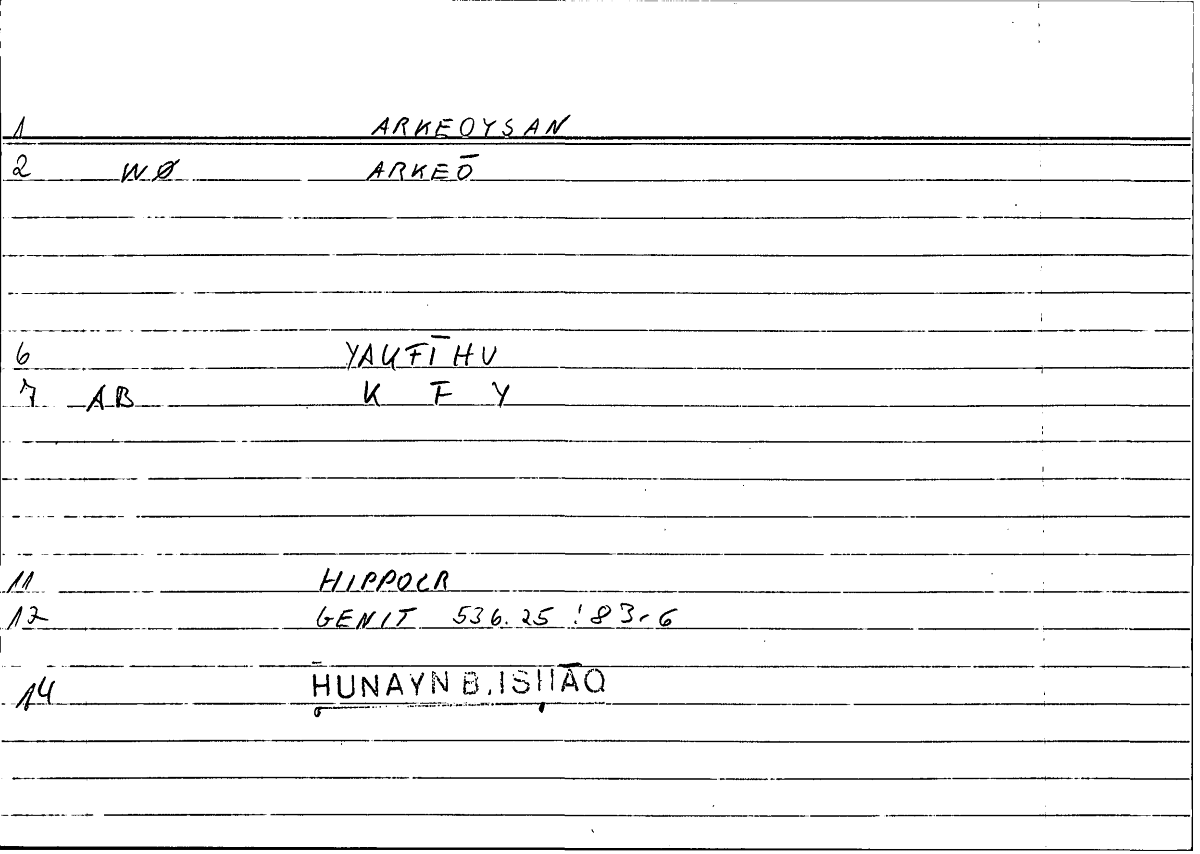 1 ARKEOYSAN
2 WØ ARKEŌ
6 YAKFĪHU
7 AB K F Y
11 HIPPOCR
12 GENIT 536.25 : 83,6
14 HUNAYN B. ISḤĀQ